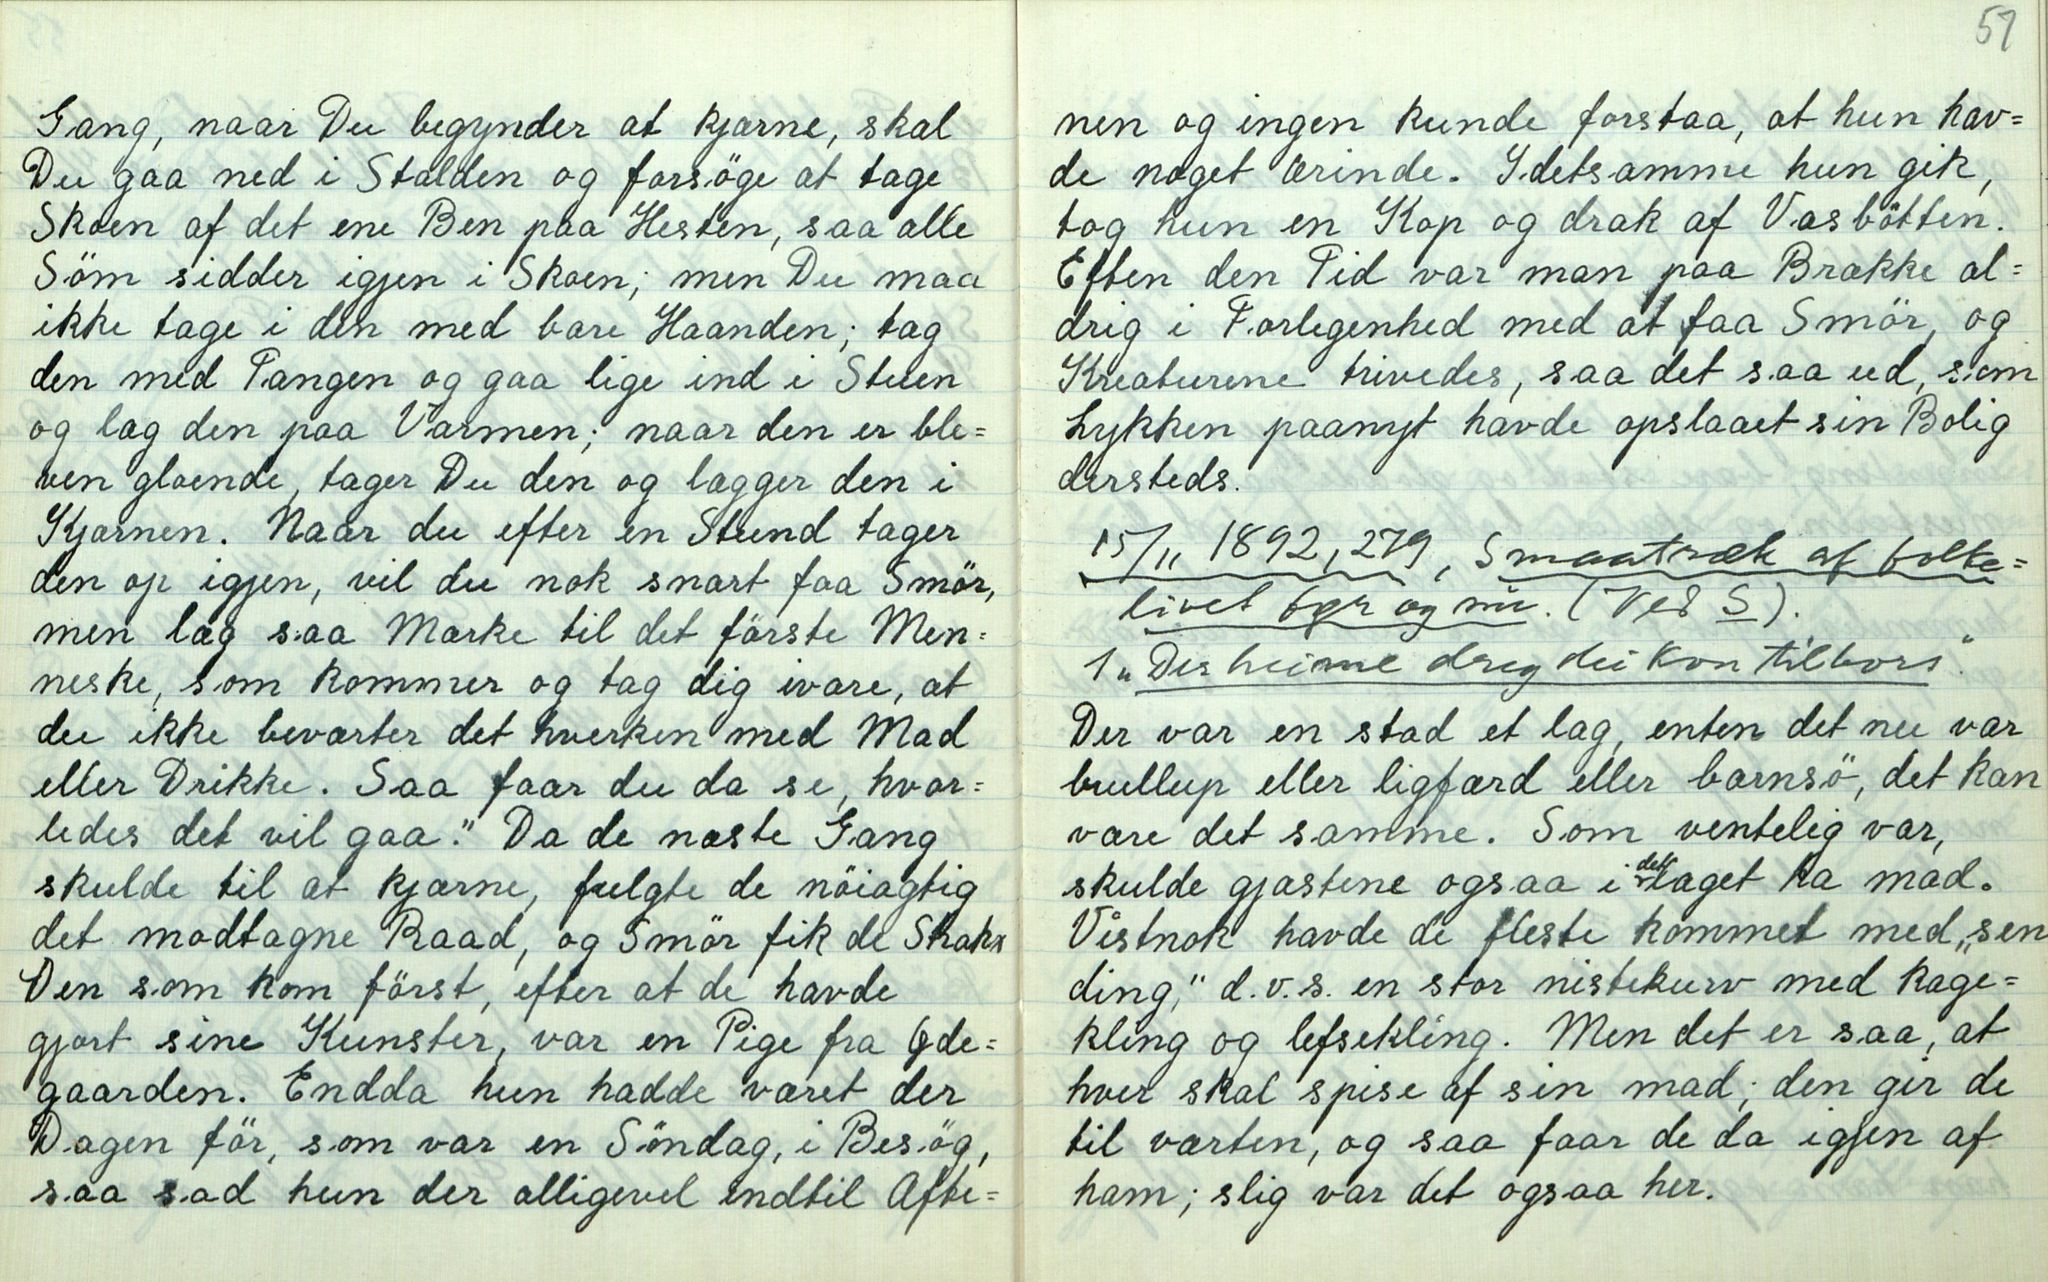 Gang, naar Du begynder at kjærne, skal
Du gaa ned i Stalden og forsöge at tage
Skoen af det ene Ben paa Hesten, saa alle
Söm sidder igjen i Skoen; men Du maa
ikke tage i den med bare Haanden; tag
den med Tangen og gaa lige ind i Stuen
og læg den paa Varmen; naar den er ble=
ven gloende, tager Du den og lægger den i
Kjærnen. Naar du efter en Stund tager
den op igjen, vil du nok snart faa Smör,
men læg saa Mærke til det förste Men=
neske, som kommer og tag dig ivare, at
du ikke beværter det hverken med Mad
eller Drikke. Saa faar du da se, hvor=
ledes det vil gaa." Da de næste Gang
skulde til at kjærne, fulgte de nöiagtig
det modtagne Raad, og Smör fik de Strakx
Den som kom först, efter at de havde
gjort sine Kunster, var en Pige fra Öde=
gaarden. Endda hun hadde været der
Dagen för, som var en Söndag, i Besög,
saa sad hun der alligevel indtil Afte=
57
nen og ingen kunde forstaa, at hun hav=
de noget Ærinde. Idetsamme hun gik,
tog hun en Kop og drak af Vasbötten.
Eften den Tid var man paa Brække al=
drig i Forlegenhed med at faa Smör, og
Kreaturene trivedes, saa det saa ud, som
Lykken paanyt havde opslaaet sin Bolig
dersteds.
15/11 1892, 279, Smaatræk af folke=
livet før og nu. (Ved S).
1 „Der heime dreg dei kon tilbors".
Der var en stad et lag, enten det nu var
bullup eller ligfærd eller barnsö, det kan
være det samme. Som ventelig var,
skulde gjæstene ogsaa i dette laget ha mad.
Vistnok havde de fleste kommet med „sen
ding," d.v.s. en stor nistekurv med kage=
kling og lefsekling. Men det er saa, at
hver skal spise af sin mad; den gir de
til værten, og saa faar de da igjen af
ham; slig var det ogsaa her.